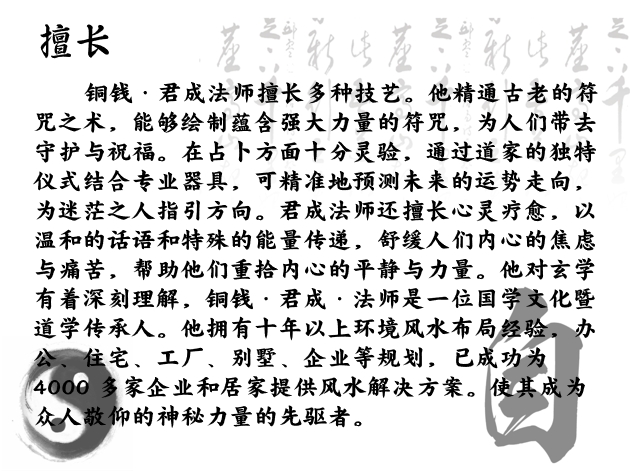 擅长
铜钱·君成法师擅长多种技艺。他精通古老的符
咒之术，能够绘制蕴含强大力量的符咒，为人们带去
守护与祝福。在占卜方面十分灵验，通过道家的独特
仪式结合专业器具，可精准地预测未来的运势走向，
为迷茫之人指引方向。君成法师还擅长心灵疗愈，以
温和的话语和特殊的能量传递，舒缓人们内心的焦虑
与痛苦，帮助他们重拾内心的平静与力量。他对玄学
有着深刻理解，铜钱·君成·法师是一位国学文化暨
道学传承人。他拥有十年以上环境风水布局经验，办
公、住宅、工厂、别墅、企业等规划，已成功为
4000 多家企业和居家提供风水解决方案。使其成为
众人敬仰的神秘力量的先驱者。
自